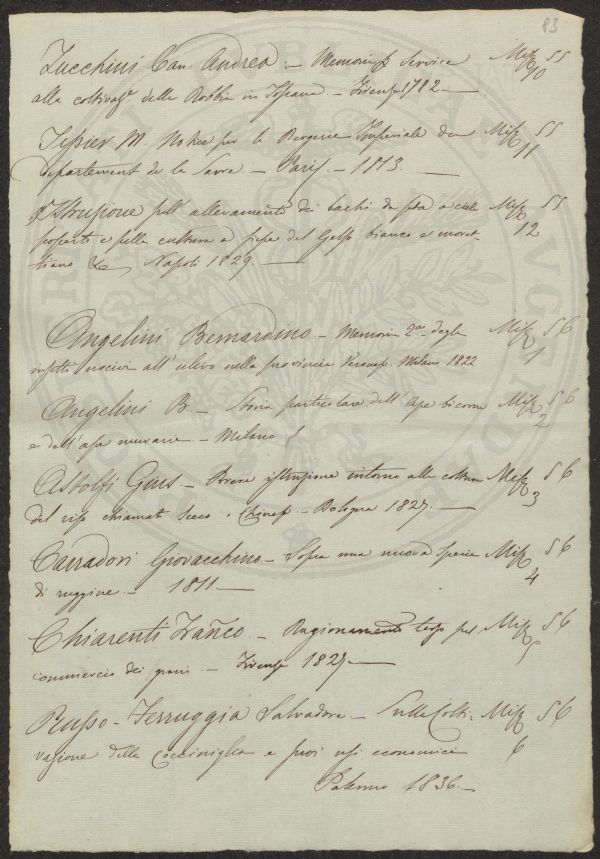 83
Zucchini Can. Andrea - Memoria p servire Misc 55
alla coltivaz. della Robbia in Toscana - Firenze 1782 - 10
Tessier M. Notice sur la Bergerie Impériale du Misc 55
Departement de la - Paris - 1813 - 11
Istruzione sull' allevamento dei bachi da seta a cielo Misc 55
scoperto e sulla cultura a siepe del Gelso bianco e moret- 12
tiano &c Napoli 1829 -
Angelini Bernardino - Memoria 2.a degli Misc 56
insetti nocivi all' ulivo nella provincia Veronese Milano 1822 1
Angelini B - Storia particolare dell' Ape bicorne Misc 56
e dell' apa muraria - Milano 2
Astolfi Gius - Breve istruzione intorno alla coltura Misc 56
del riso chiamato Secco o Chinese - Bologna 1827 - 3
Carradori Giovacchino - Sopra una nuova specie Misc 56
di ruggine - 1811 - 4
Chiarenti Franco - Ragionamento sul Misc 56
commercio dei grani - Firenze 1827 - 5
Russo-Ferruggia Salvadore - Sulla Colti- Misc 56
vazione della Cocciniglia e suoi usi economici 6
Palermo 1836 -